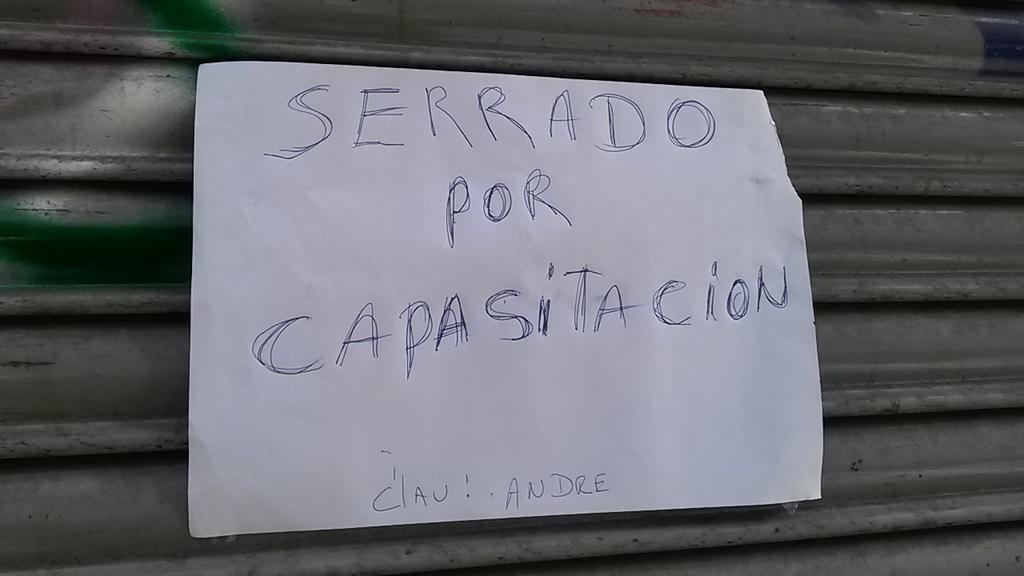 SERRADO
POR
CAPASITACION
CLAU: ANDRE